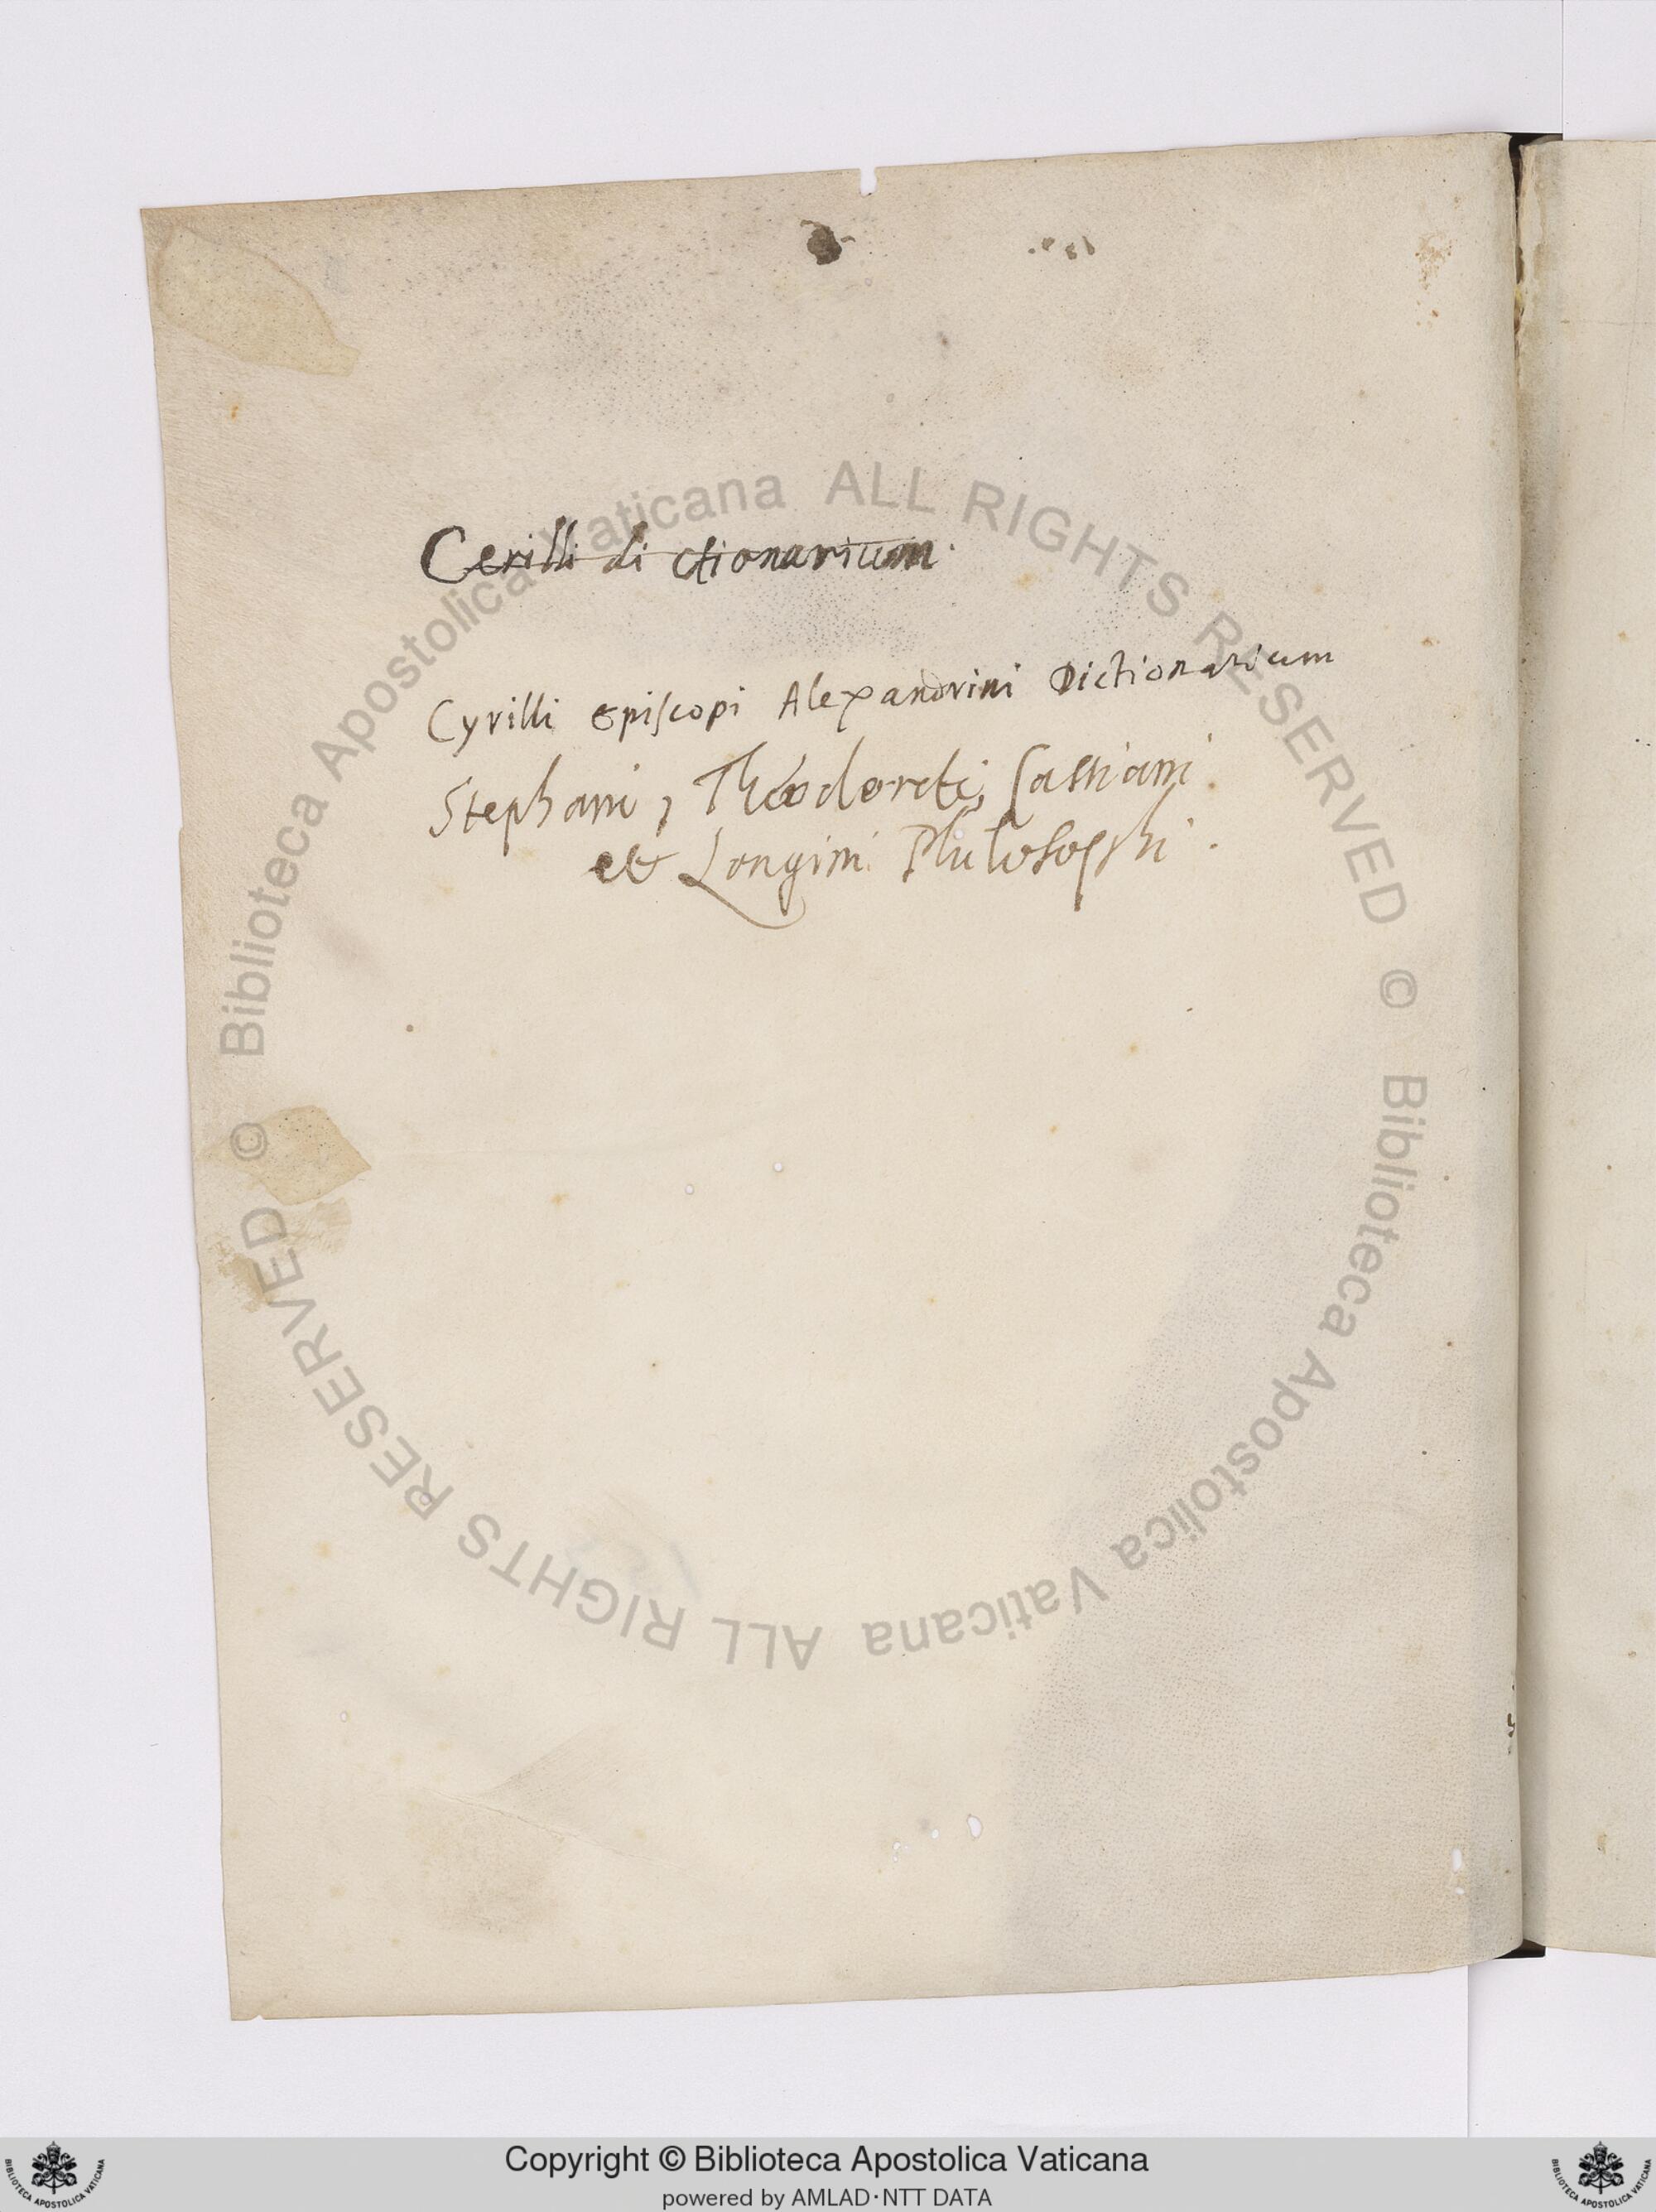 Cerilli di ctionarium.
Cyrilli Episcopi Alexandrini Dictionarium
Stephani, Theodoreti, Cassiani
et Longini Philosophi.
© Biblioteca Apostolica Vaticana ALL RIGHTS RESERVED
© Biblioteca Apostolica Vaticana ALL RIGHTS RESERVED
Copyright © Biblioteca Apostolica Vaticana
powered by AMLAD·NTT DATA
BIBLIOTECA APOSTOLICA VATICANA
BIBLIOTECA APOSTOLICA VATICANA